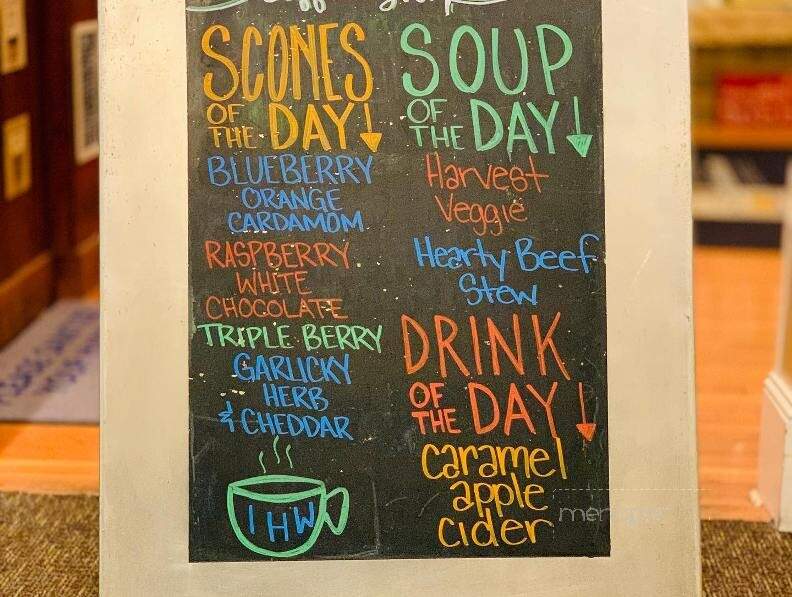 SCONES
OF
THE DAY
BLUEBERRY
ORANGE
CARDAMOM
RASPBERRY
WHITE
CHOCOLATE
TRIPLE BERRY
GARLICKY
HERB
& CHEDDAR
IHW
SOUP
OF
THE DAY
Harvest
Veggie
Hearty Beef
Stew
DRINK
OF
THE DAY
caramel
apple
cider